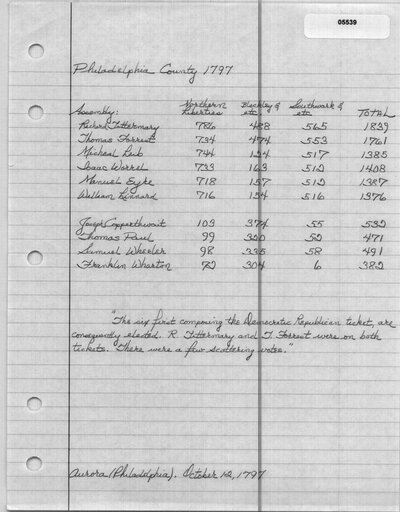 05539
Philadelphia County 1797
Northern Blockley & Southwark &
Assembly: Liberties etc. etc TOTAL
Richard Tittermary 786 488 565 1839
Thomas Forrest 734 474 553 1761
Micheal Leib 744 124 517 1385
Isaac Worrel 733 163 512 1408
Manuel Eyke 718 157 512 1387
William Linnard 716 516 1376
Joseph Copperthwait 103 374 55 532
Thomas Paul 99 320 52 471
Samuel Wheeler 98 335 58 491
Franklin Wharton 72 304 6 382
"The six first composing the Democratic Republican ticket, are
consequently elected. R. Tittermary and T. Forrest were on both
tickets. There were a few scattering votes."
Aurora (Philadelphia). October 12, 1797